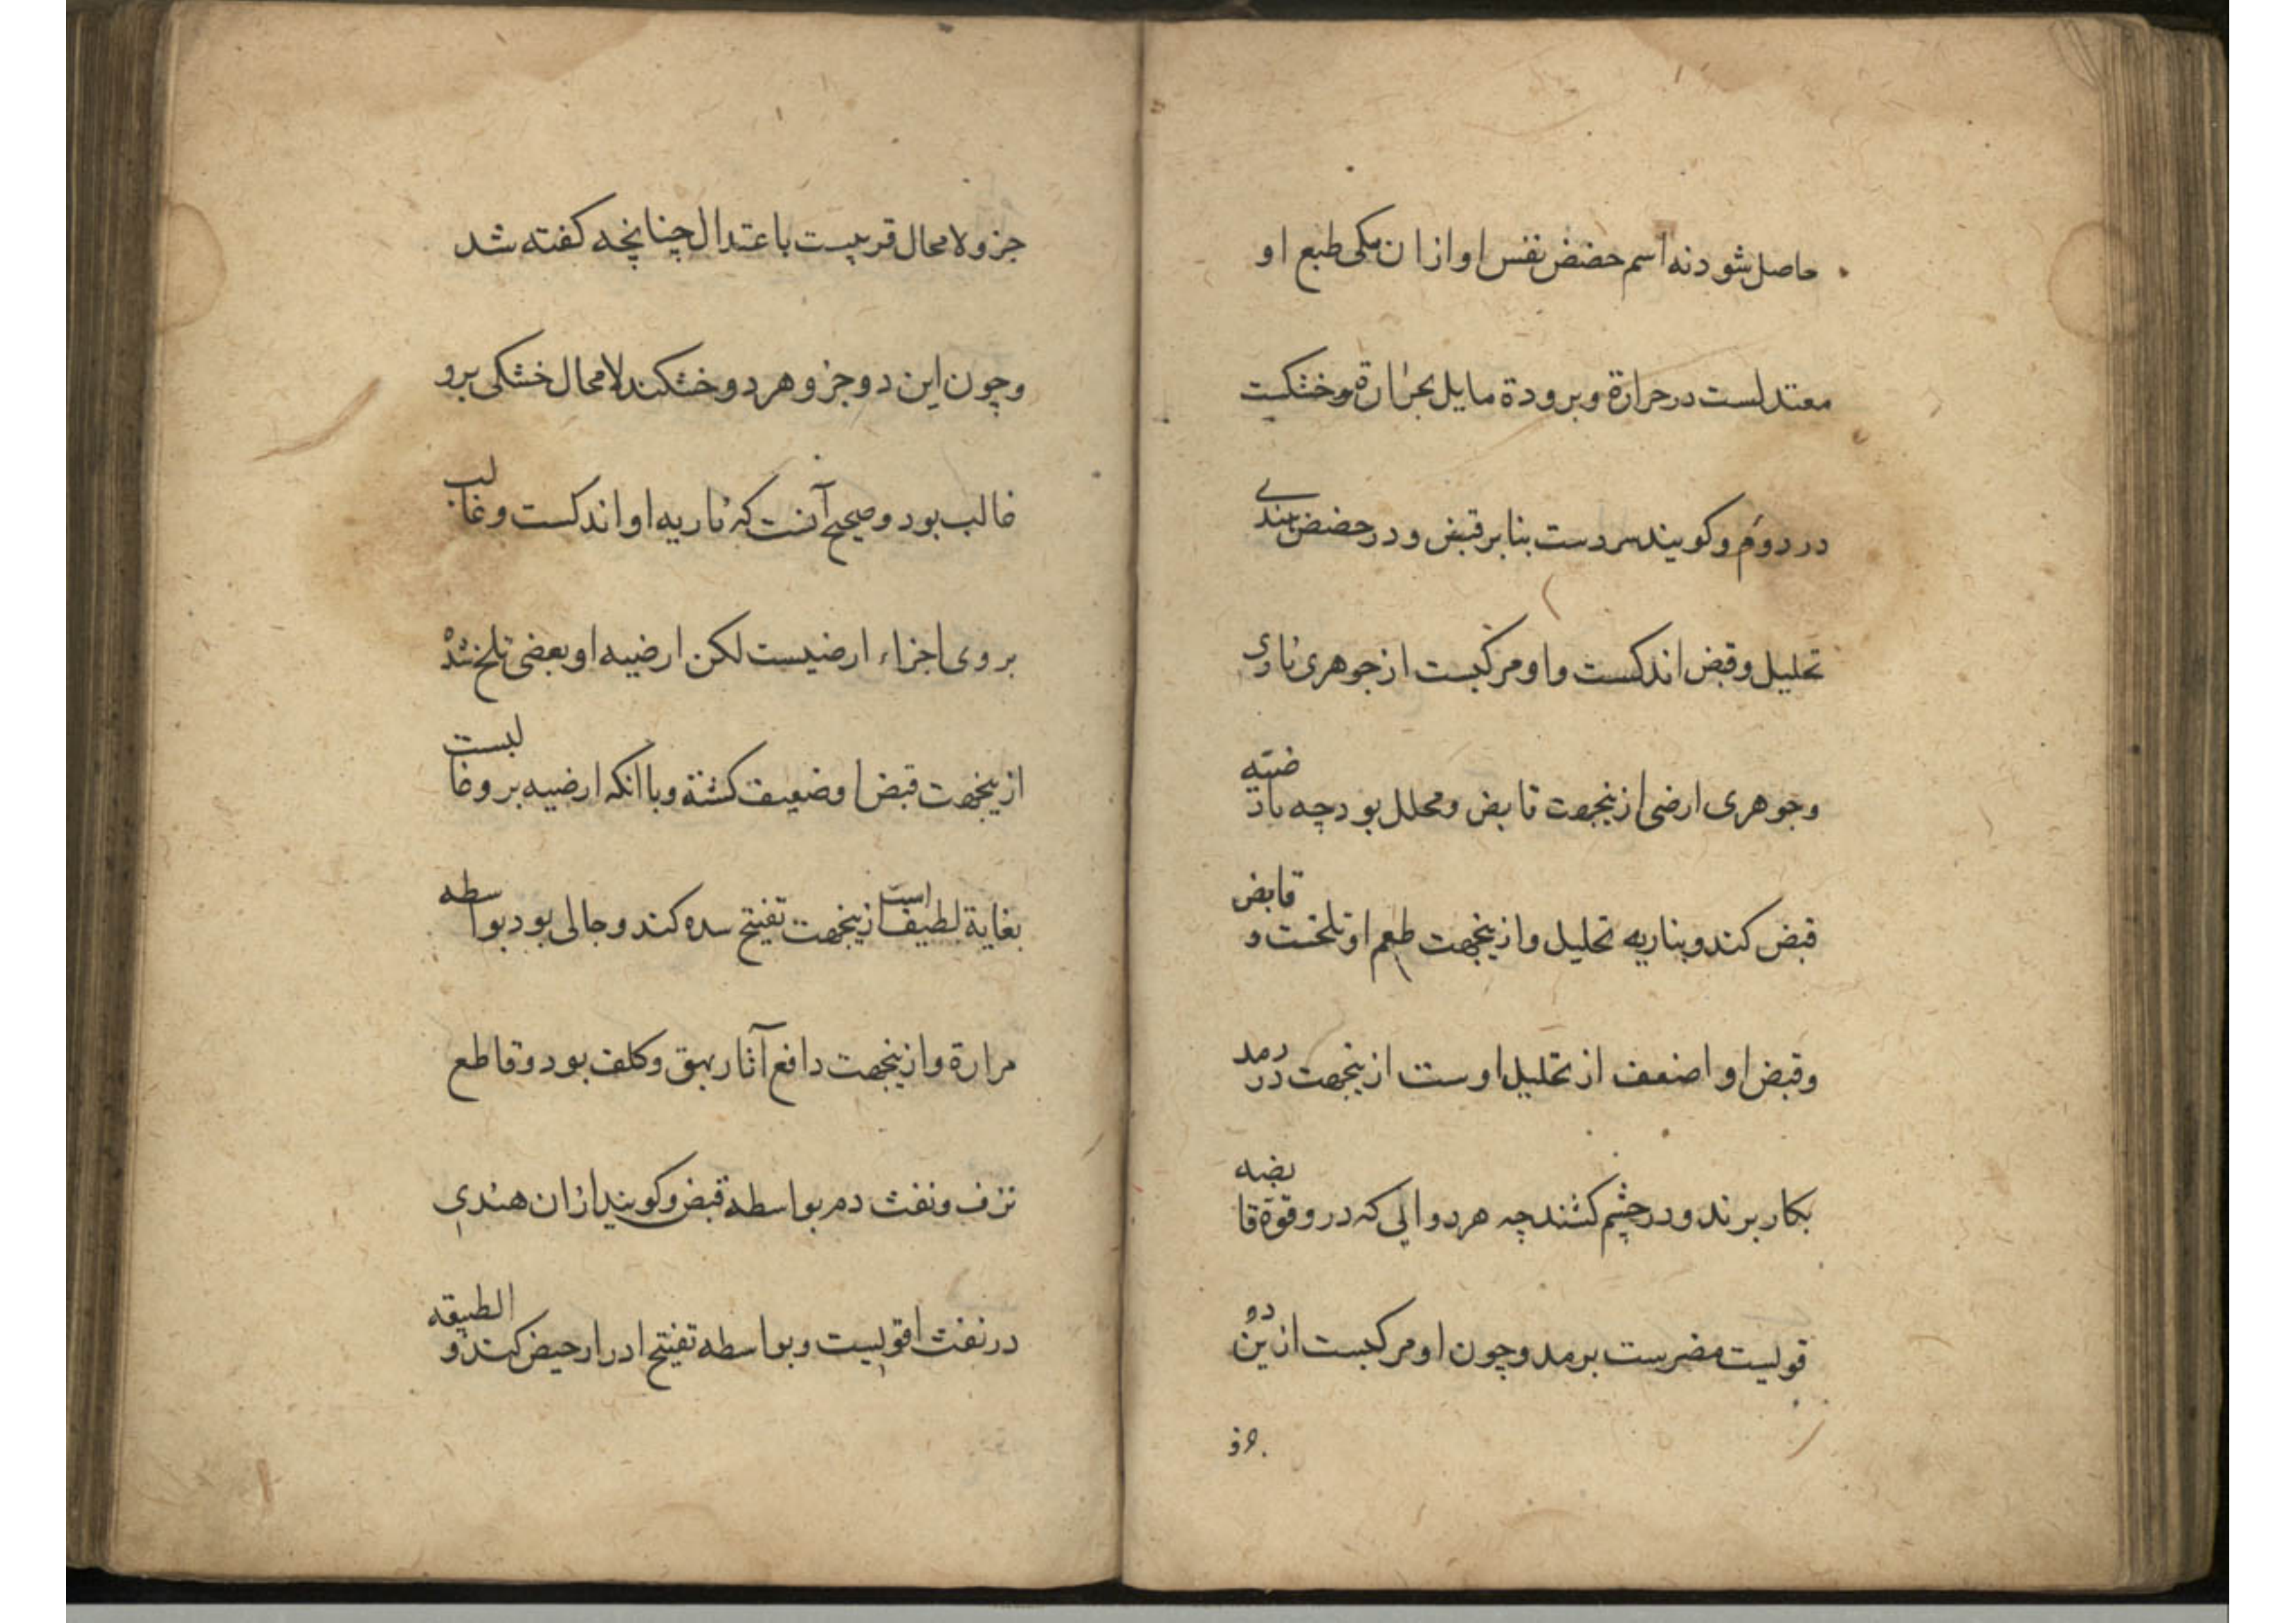 حاصل شود نه اسم حضض نفس او از ان مکی طبع او
معتدلست در حرارة و برودة مایل بحرارة و خشکست
در دوم و کویند سردست بنابر قبض و در حضض هندی
تحلیل و قبض اندکست و او مرکبست از جوهری ناری
و جوهری ارضی ازینجهت قابض و محلل بود چه بارضیه
قبض کند و بناریه تحلیل و ازینجهت طعم او تلخست و قابض
و قبض او اضعف از تحلیل اوست ازینجهت در رمد
بکار برند و در چشم کشند چه هر دوایی که درو قوة قابضه
قویست مضرست برمد و چون او مرکبست ازین دو
جزو
جزو لامحال قریبست باعتدال چنانچه کفته شد
و چون این دو جزو هر دو خشکند لامحال خشکی برو
غالب بود و صحیح آنست که ناریه او اندکست و غالب
بروی اجزاء ارضیست لکن ارضیه او بعضی تلخ شده
ازینجهت قبض او ضعیف کشته و با انکه ارضیه برو غالبست
بغایة لطیف است ازینجهت تفتیح سده کند و جالی بود بواسطه
مرارة و ازینجهت دافع آثار بهق و کلف بود و قاطع
نزف و نفث دم بواسطه قبض و کویند ازان هندی
در نفث اقویست و بواسطه تفتیح ادرار حیض کند و الطیقه